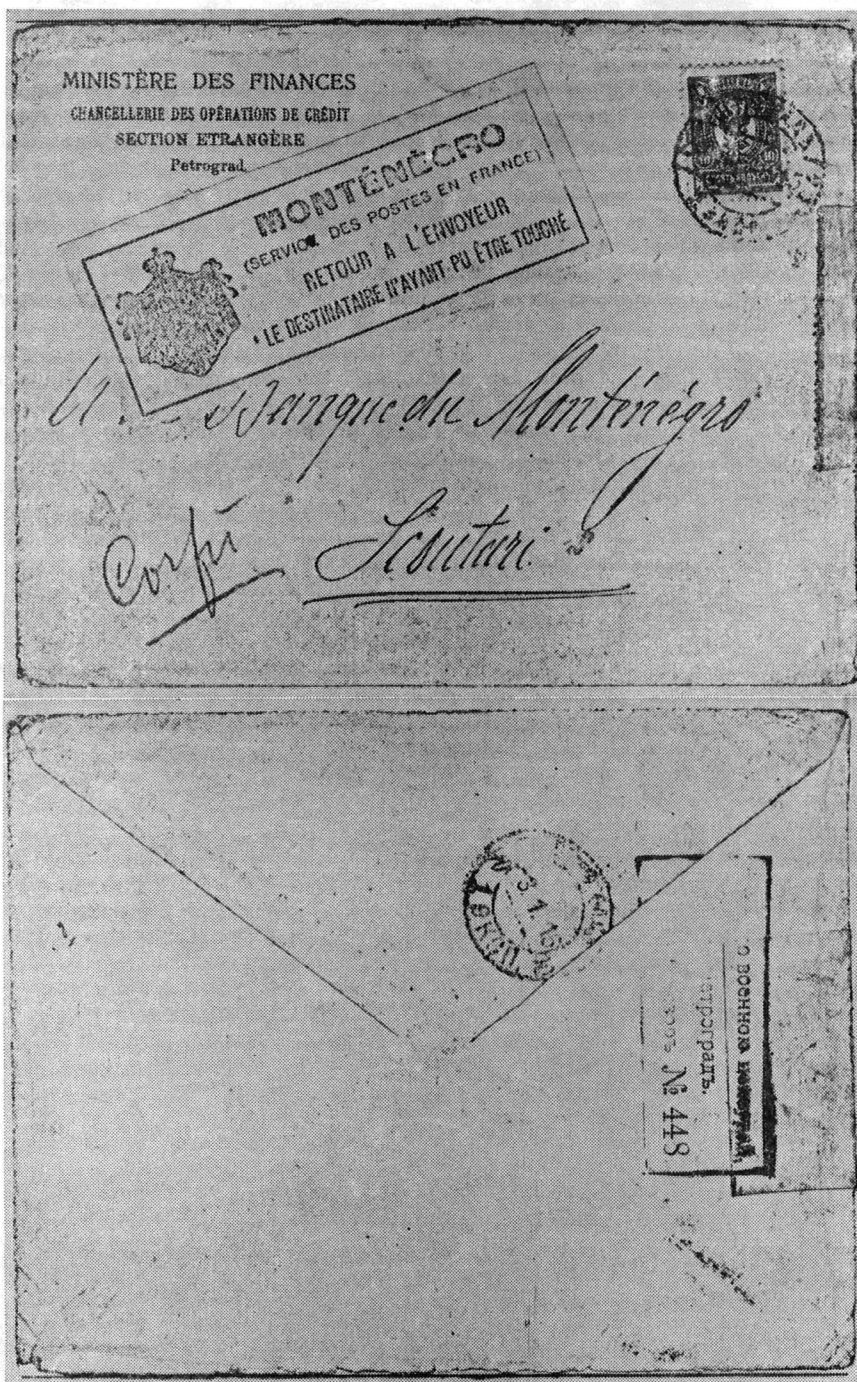 MINISTÈRE DES FINANCES
CHANCELLERIE DES OPÉRATIONS DE CRÉDIT
SECTION ETRANGÈRE
Petrograd
MONTÉNÉGRO
(SERVICE DES POSTES EN FRANCE)
RETOUR A L'ENVOYEUR
LE DESTINATAIRE N'AYANT PU ÊTRE TOUCHÉ
10 10
Banque du Monténégro
Corfu
Scutari
3.1.16
О ВОЕННОЮ
етроградъ.
№ 448